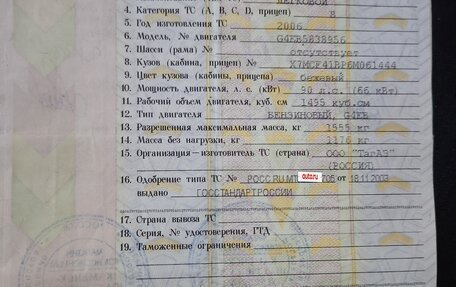 ЛЕГКОВОЙ
4. Категория ТС (A, B, C, D, прицеп) B
5. Год изготовления ТС 2006
6. Модель, № двигателя G4EB5838956
7. Шасси (рама) № отсутствует
8. Кузов (кабина, прицеп) № X7MCF41BP6M061444
9. Цвет кузова (кабины, прицепа) бежевый
10. Мощность двигателя, л. с. (кВт) 90 л.с. (66 кВт)
11. Рабочий объем двигателя, куб. см 1495 куб.см
12. Тип двигателя БЕНЗИНОВЫЙ, G4EB
13. Разрешенная максимальная масса, кг 1555 кг
14. Масса без нагрузки, кг 1176 кг
15. Организация—изготовитель ТС (страна) ООО "ТагАЗ"
(РОССИЯ)
16. Одобрение типа ТС № РОСС RU.МТ auto.ru 705 от 18.11.2003
выдано ГОССТАНДАРТ РОССИИ
17. Страна вывоза ТС
18. Серия, № удостоверения, ГТД
19. Таможенные ограничения